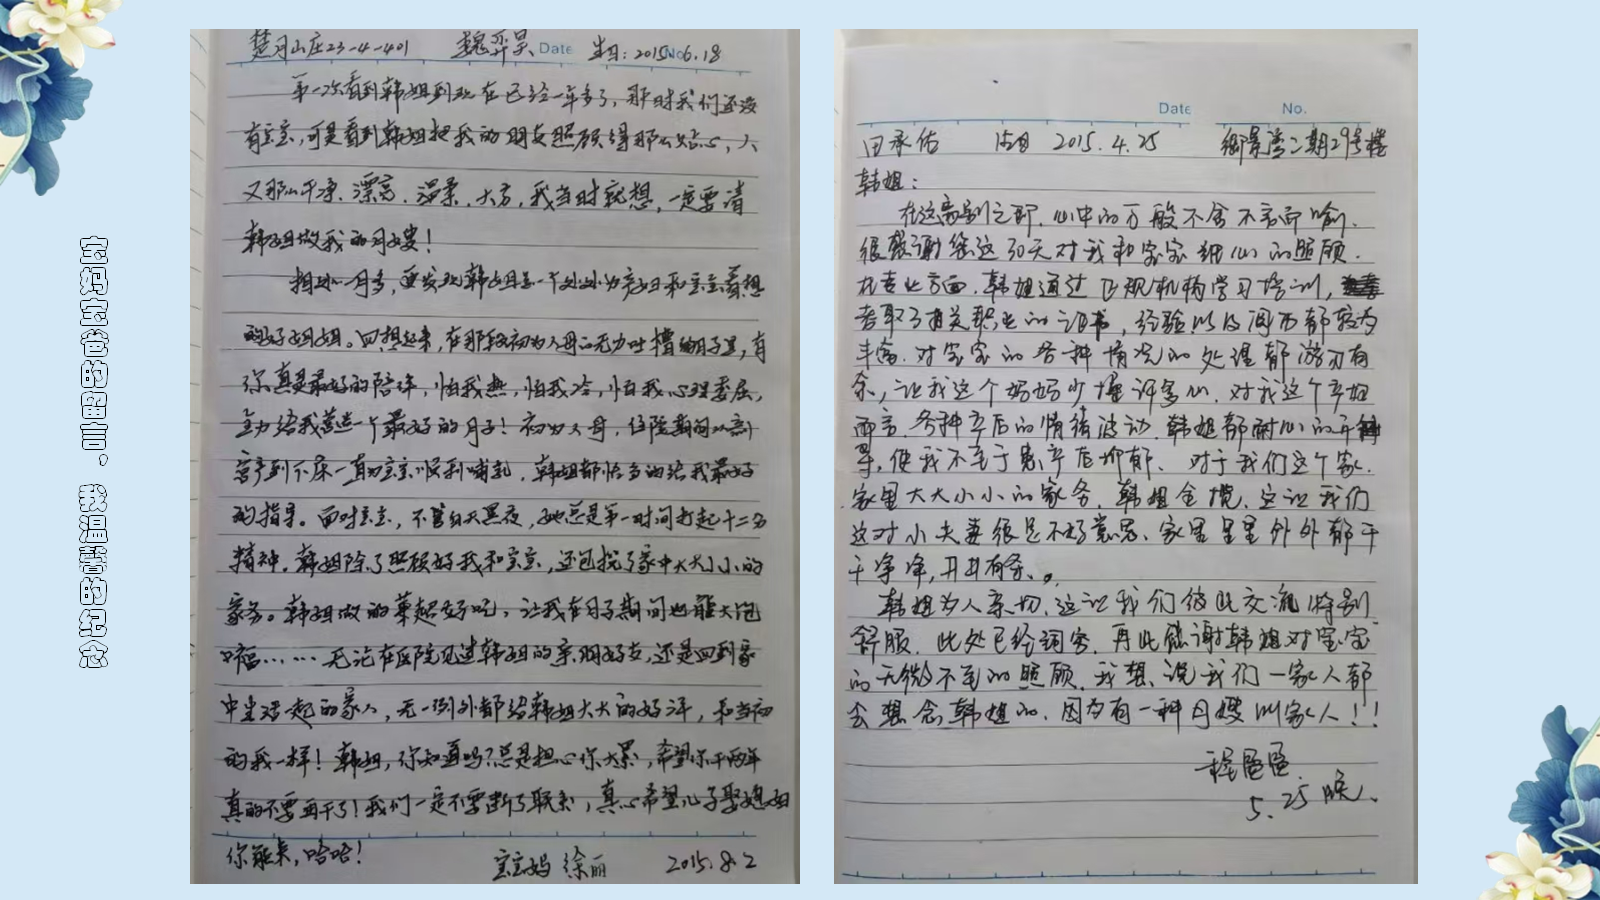 宝妈宝爸的留言,我温馨的纪念
楚月山庄23-4-401 魏弈昊 Date 生日:2015.6.18
第一次看到韩姐到现在已经一年多了,那时我们还没
有宝宝,可是看到韩姐把我的朋友照顾得那么贴心,人
又那么干净、漂亮、温柔、大方,我当时就想,一定要请
韩姐做我的月嫂!
相处一月多,更发现韩姐是一个处处为产妇和宝宝着想
的好姐姐。回想起来,在那段初为人母的无力吐槽的月子里,有
你真是最好的陪伴,怕我热,怕我冷,怕我心理委屈,
全力给我营造一个最好的月子!初为人母,住院期间从剖
宫产到下床一直到宝宝顺利哺乳,韩姐都恰当的给我最好
的指导。面对宝宝,不管白天黑夜,她总是第一时间打起十二分
精神。韩姐除了照顾好我和宝宝,还包揽了家中大大小小的
家务。韩姐做的菜超好吃,让我在月子期间也能大饱
口福……无论在医院见过韩姐的亲朋好友,还是回到家
中生活一起的家人,无一例外都给韩姐大大的好评,和当初
的我一样!韩姐,你知道吗?总是担心你太累,希望你干两年
真的不要再干了!我们一定不要断了联系,真心希望儿子娶媳妇
你能来,哈哈!
宝宝妈 徐丽 2015.8.2
Date No.
田承佑 15日 2015.4.25 御景湾二期29号楼
韩姐:
在这离别之即,心中的万般不舍不言而喻.
很感谢您这30天对我和宝宝细心的照顾.
在专业方面,韩姐通过正规机构学习培训,
考取了相关职业的证书,经验以及阅历都较为
丰富.对宝宝的各种情况的处理都游刃有
余,让我这个妈妈少操许多心.对我这个产妇
而言,各种产后的情绪波动,韩姐都耐心的开解
导,使我不至于患产后抑郁.对于我们这个家.
家里大大小小的家务,韩姐全揽,这让我们
这对小夫妻很是不好意思.家里里里外外都干
干净净,井井有条.
韩姐为人亲切,这让我们彼此交流特别
舒服.此处已经词穷,再此感谢韩姐对宝宝
的无微不至的照顾.我想说我们一家人都
会想念韩姐的.因为有一种月嫂叫家人!!
程
5.25晚.